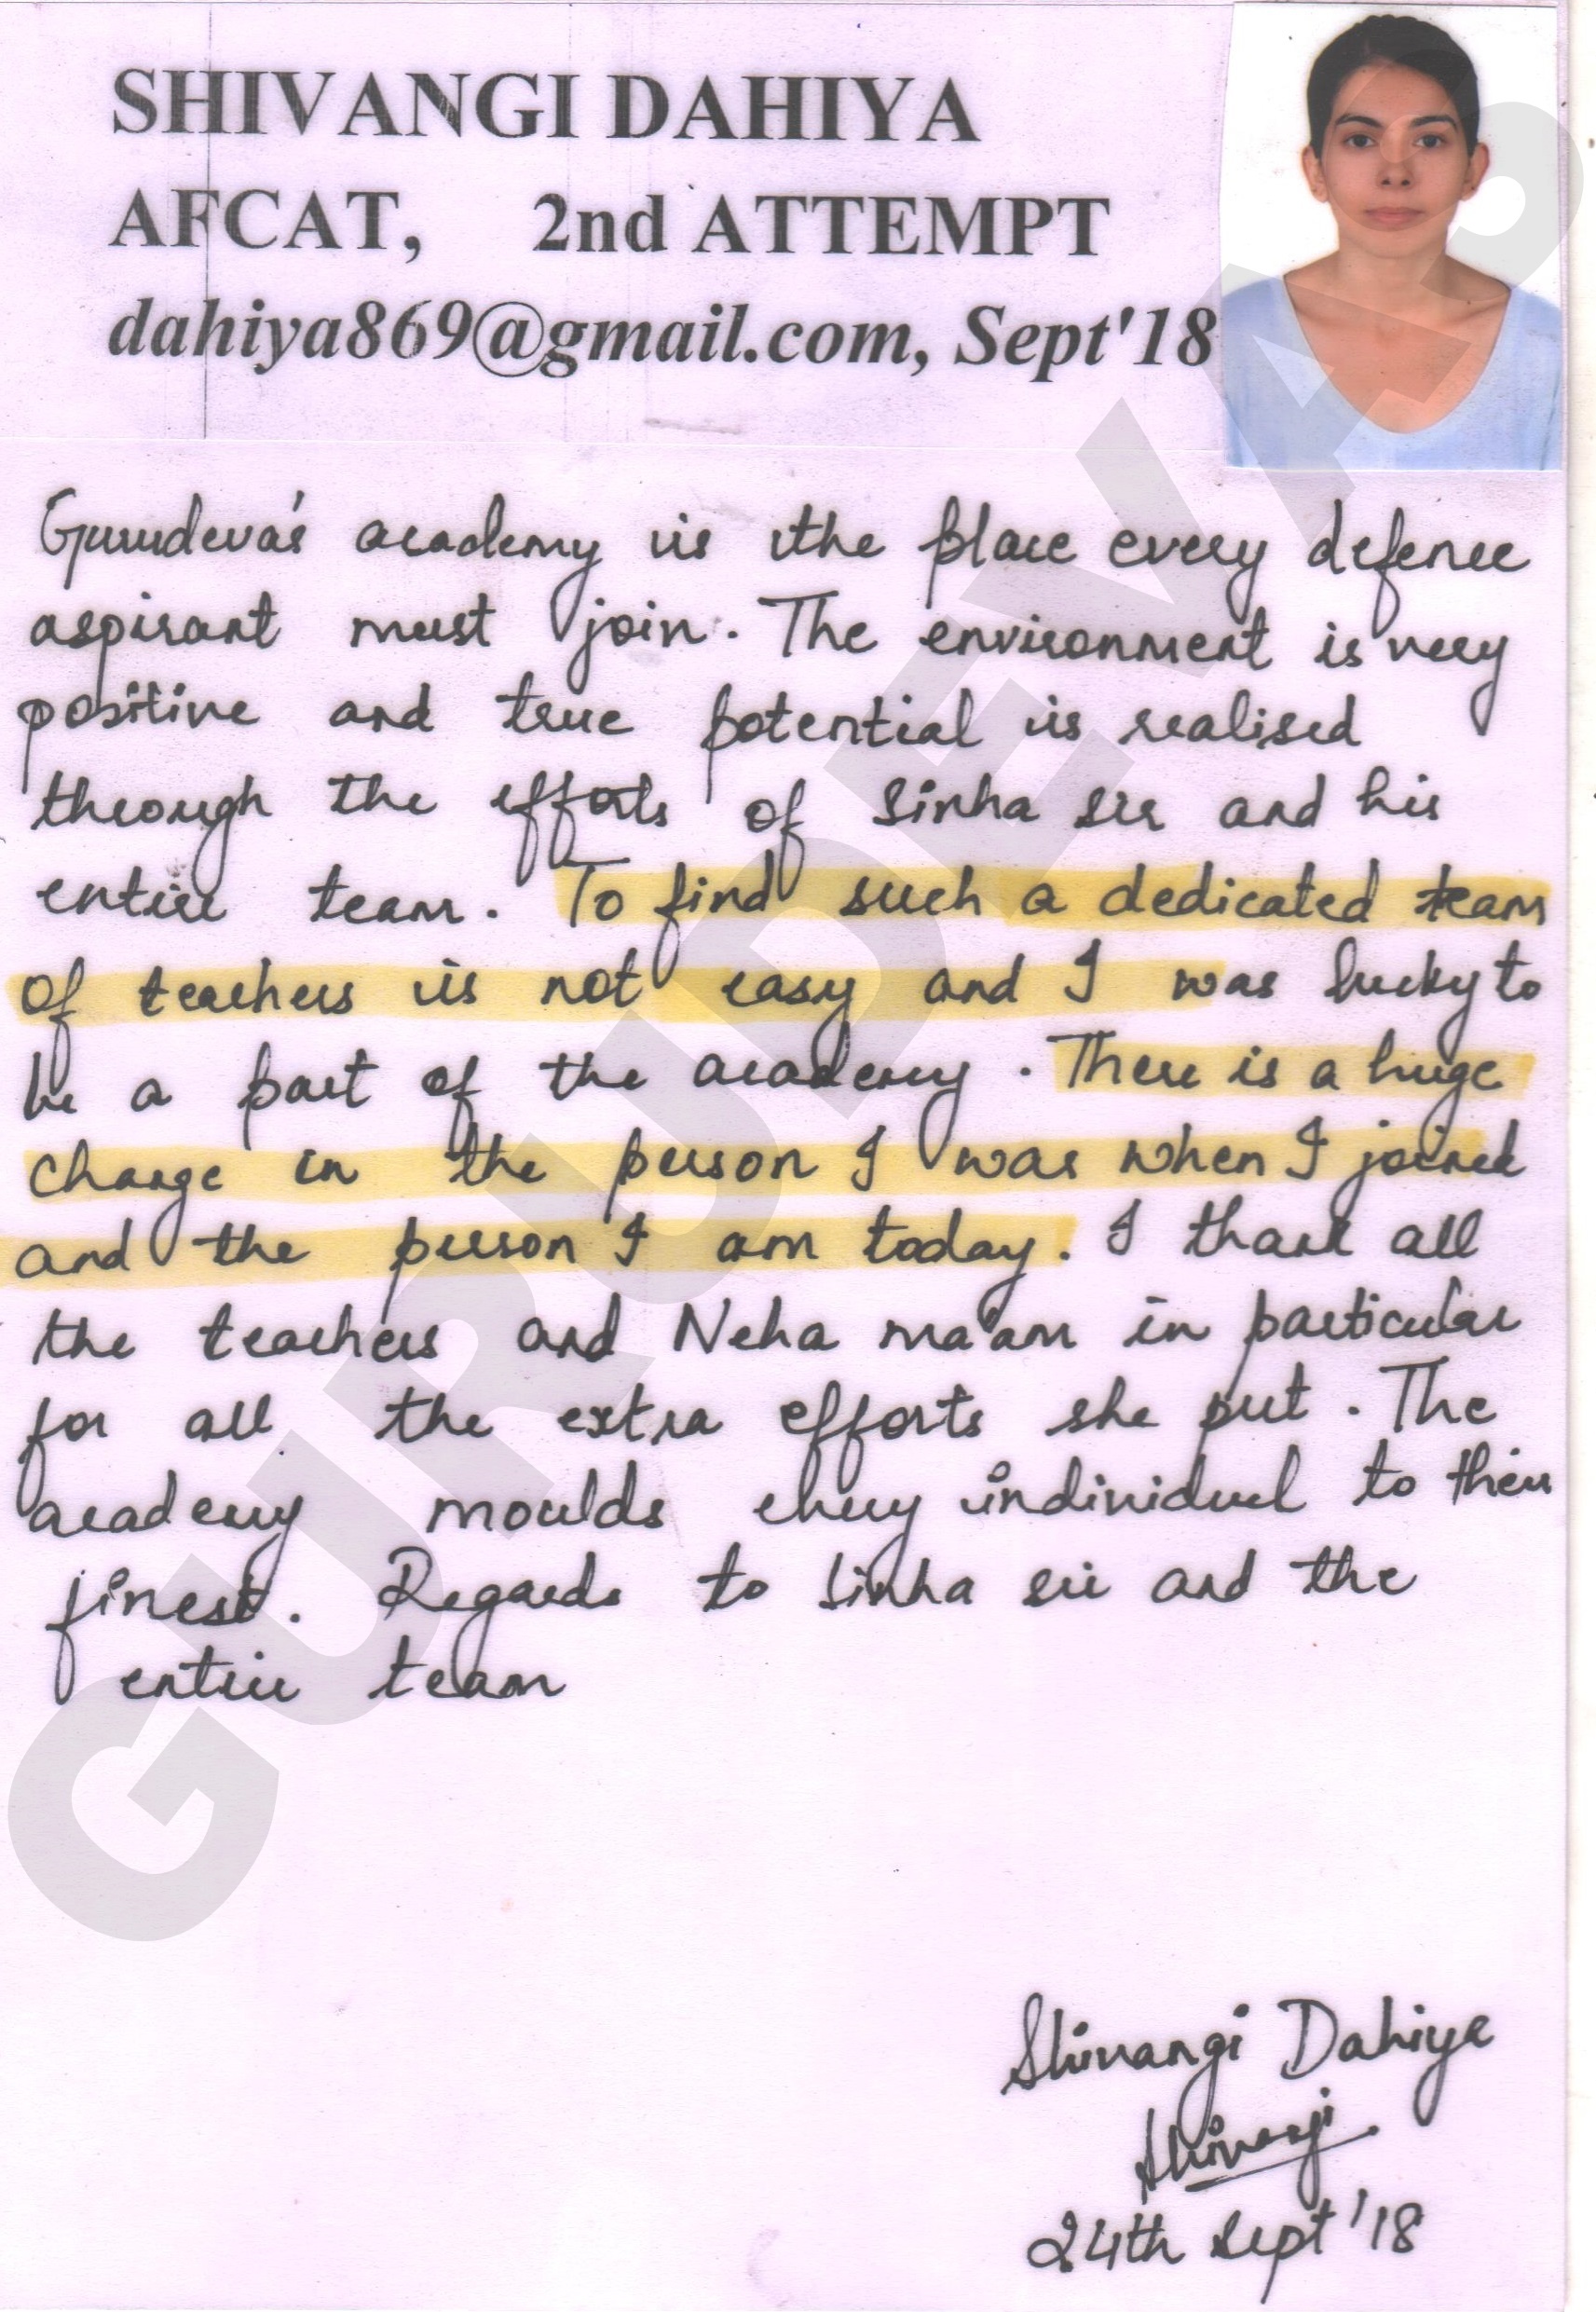 SHIVANGI DAHIYA
AFCAT, 2nd ATTEMPT
dahiya869@gmail.com, Sept'18
Gurudeva's academy is the place every defence
aspirant must join. The environment is very
positive and true potential is realised
through the efforts of Sinha sir and his
entire team. To find such a dedicated team
of teachers is not easy and I was lucky to
be a part of the academy. There is a huge
change in the person I was when I joined
and the person I am today. I thank all
the teachers and Neha ma'am in particular
for all the extra efforts she put. The
academy moulds every individual to their
finest. Regards to Sinha sir and the
entire team
Shivangi Dahiya
Shivangi
24th Sept '18
GURUDEVAS